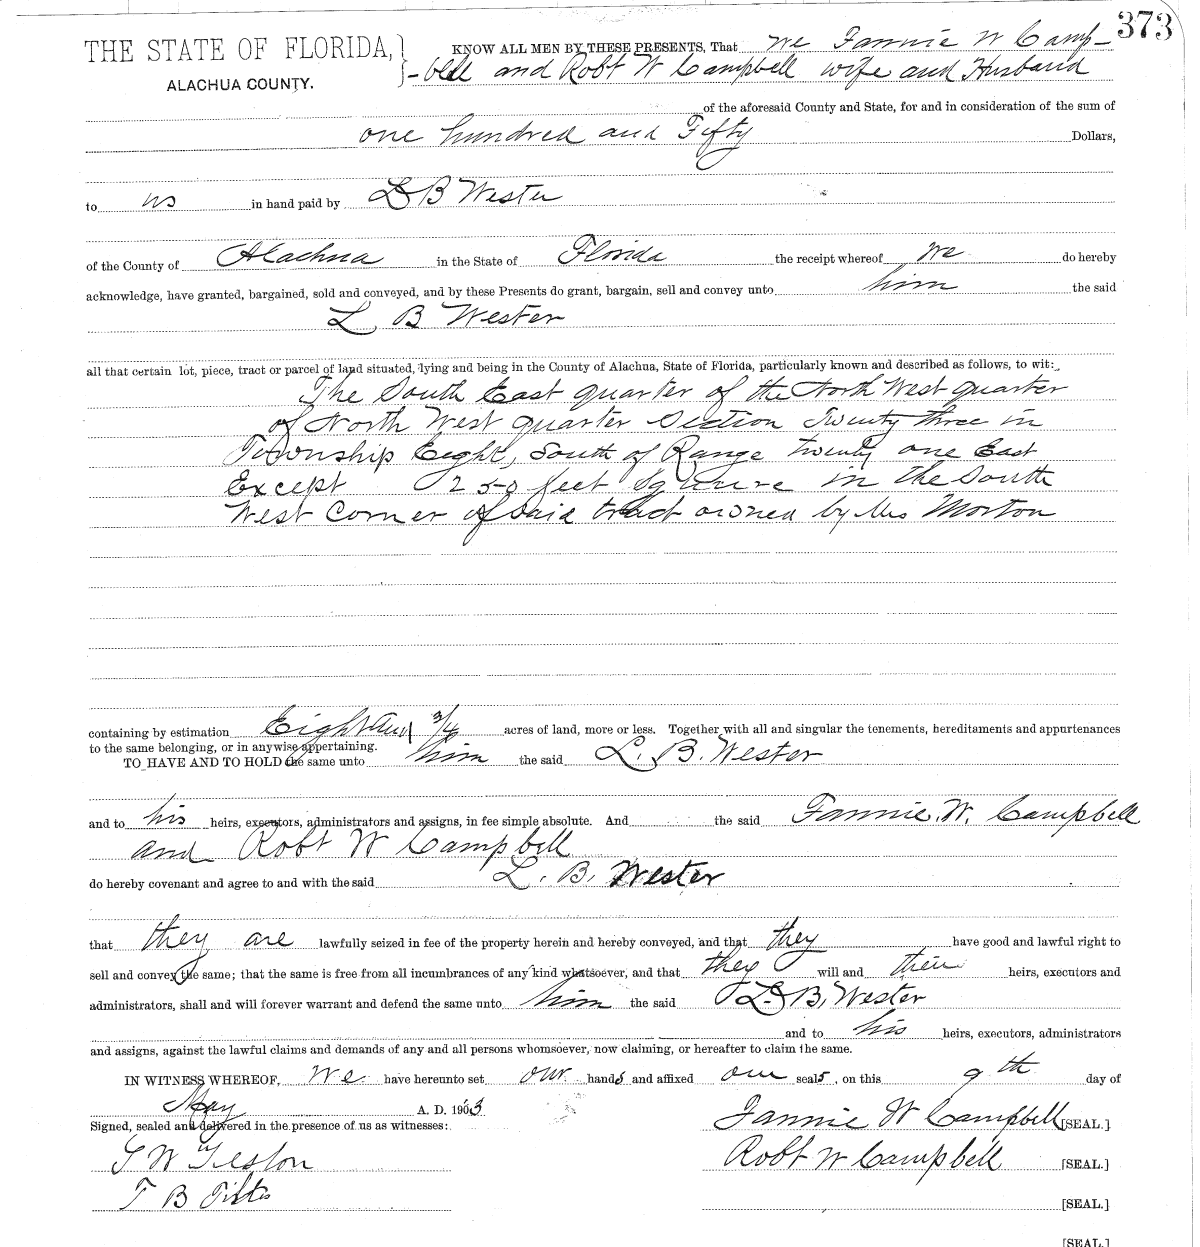 373
THE STATE OF FLORIDA,
ALACHUA COUNTY.
KNOW ALL MEN BY THESE PRESENTS, That we Fannie W Camp-
-bell and Robt W Campbell wife and Husband
of the aforesaid County and State, for and in consideration of the sum of
one hundred and Fifty Dollars,
to us in hand paid by L B Wester
of the County of Alachua in the State of Florida the receipt whereof we do hereby
acknowledge, have granted, bargained, sold and conveyed, and by these Presents do grant, bargain, sell and convey unto him the said
L B Wester
all that certain lot, piece, tract or parcel of land situated, lying and being in the County of Alachua, State of Florida, particularly known and described as follows, to wit:
The South East quarter of the North West quarter
of North West quarter Section Twenty three in
Township Eight, South of Range twenty one East
Except 250 feet Square in the South
West Corner of said tract owned by Mrs Morton
containing by estimation Eight and 3/4 acres of land, more or less. Together with all and singular the tenements, hereditaments and appurtenances
to the same belonging, or in anywise appertaining.
TO HAVE AND TO HOLD the same unto him the said L. B. Wester
and to his heirs, executors, administrators and assigns, in fee simple absolute. And the said Fannie. W. Campbell
and Robt W Campbell
do hereby covenant and agree to and with the said L. B. Wester
that they are lawfully seized in fee of the property herein and hereby conveyed, and that they have good and lawful right to
sell and convey the same; that the same is free from all incumbrances of any kind whatsoever, and that they will and their heirs, executors and
administrators, shall and will forever warrant and defend the same unto him the said L B. Wester
and to his heirs, executors, administrators
and assigns, against the lawful claims and demands of any and all persons whomsoever, now claiming, or hereafter to claim the same.
IN WITNESS WHEREOF, we have hereunto set our hands and affixed our seals, on this 9th day of
May A. D. 1903
Signed, sealed and delivered in the presence of us as witnesses:
Fannie W Campbell [SEAL.]
Robt W Campbell [SEAL.]
[SEAL.]
[SEAL.]